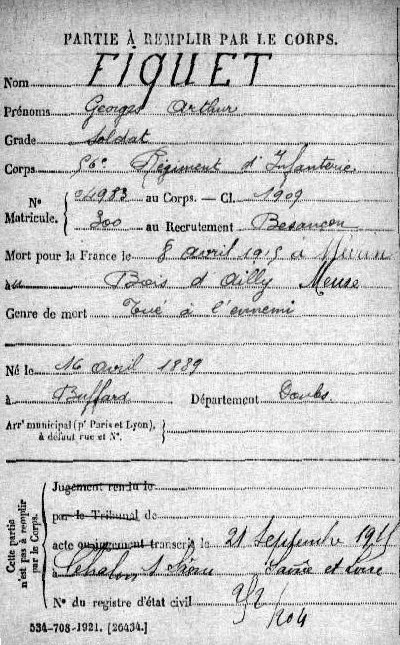 PARTIE À REMPLIR PAR LE CORPS.
Nom FIQUET
Prénoms Georges Arthur
Grade soldat
Corps 56e Régiment d'Infanterie
N° Matricule. 04983 au Corps. — Cl. 1909
300 au Recrutement Besançon
Mort pour la France le 8 avril 1915 à
au Bois d'Ailly Meuse
Genre de mort Tué à l'ennemi
Né le 16 avril 1889
à Buffard Département Doubs
Arr' municipal (p' Paris et Lyon),
à défaut rue et N°.
Cette partie n'est pas à remplir par le Corps.
Jugement rendu le
par le Tribunal de
acte ou jugement transcrit le 21 Septembre 1915
à Chalon s/ Saône Saône et Loire
N° du registre d'état civil 252/204
534-708-1921. [26434.]